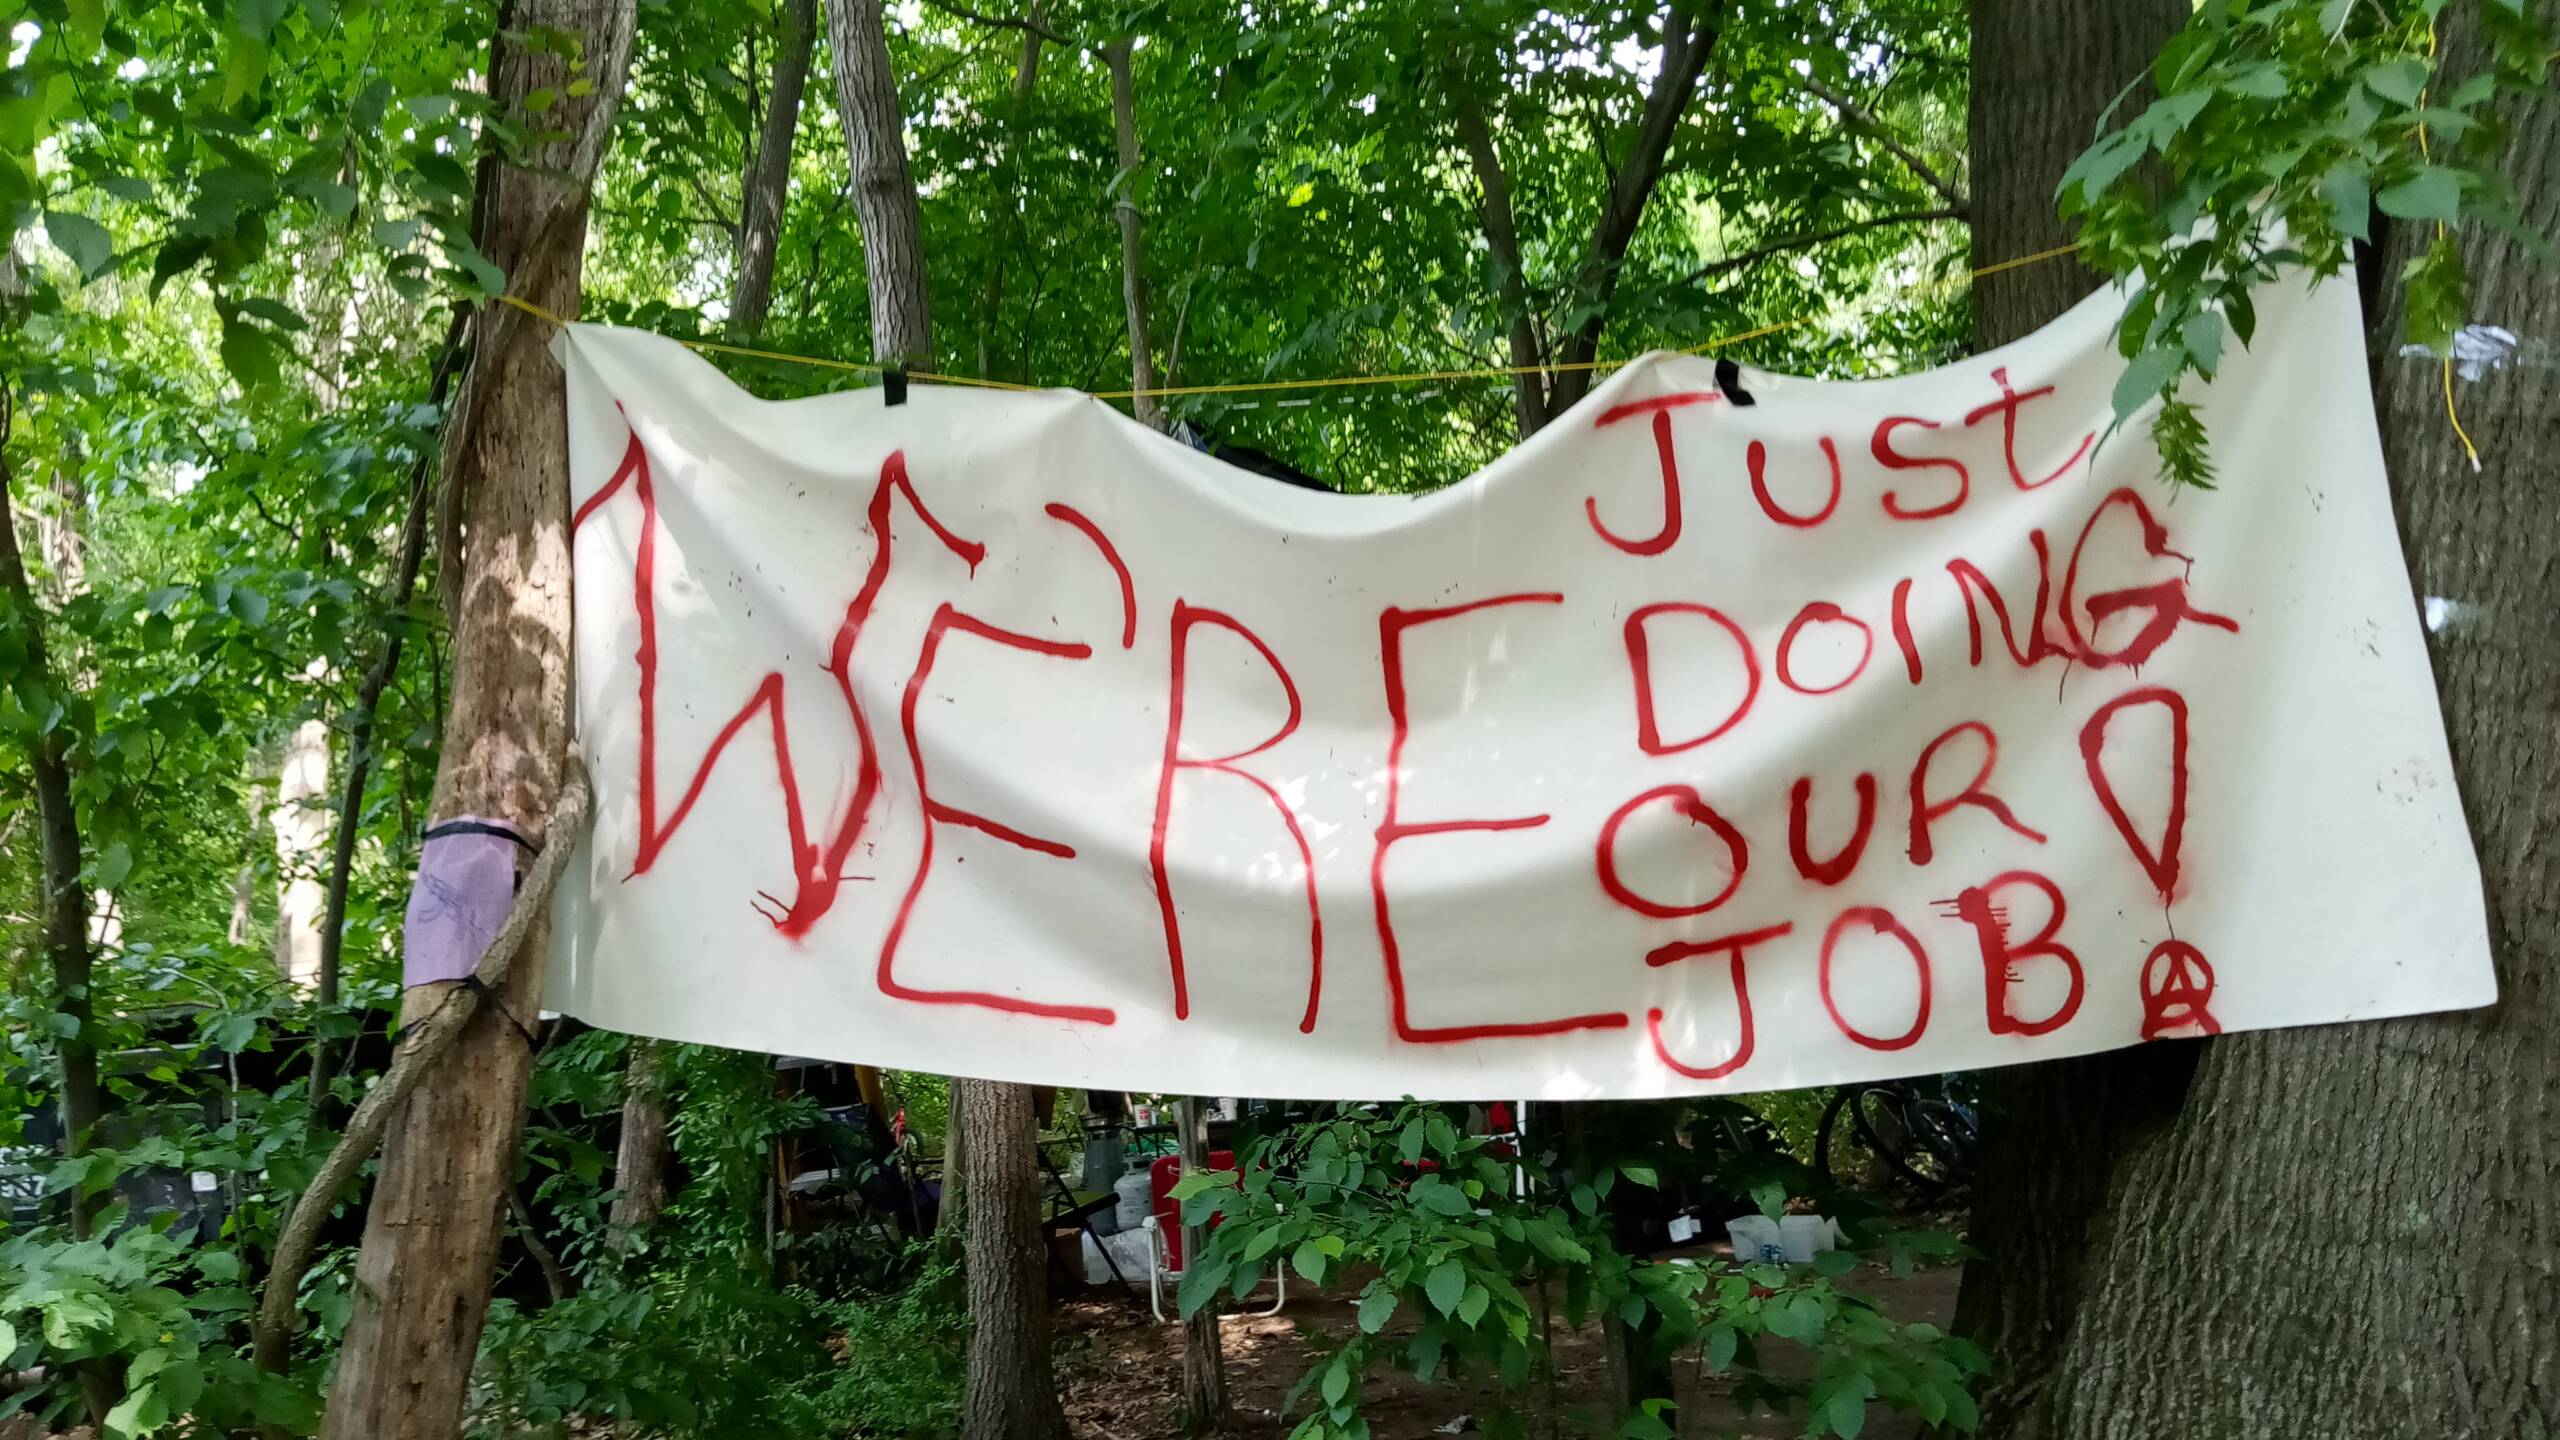 WE'RE
Just
DOING
OUR
JOB!